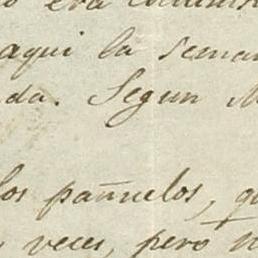 era
aqui la sema
da. Segun M
los pañuelos, q
veces, pero n